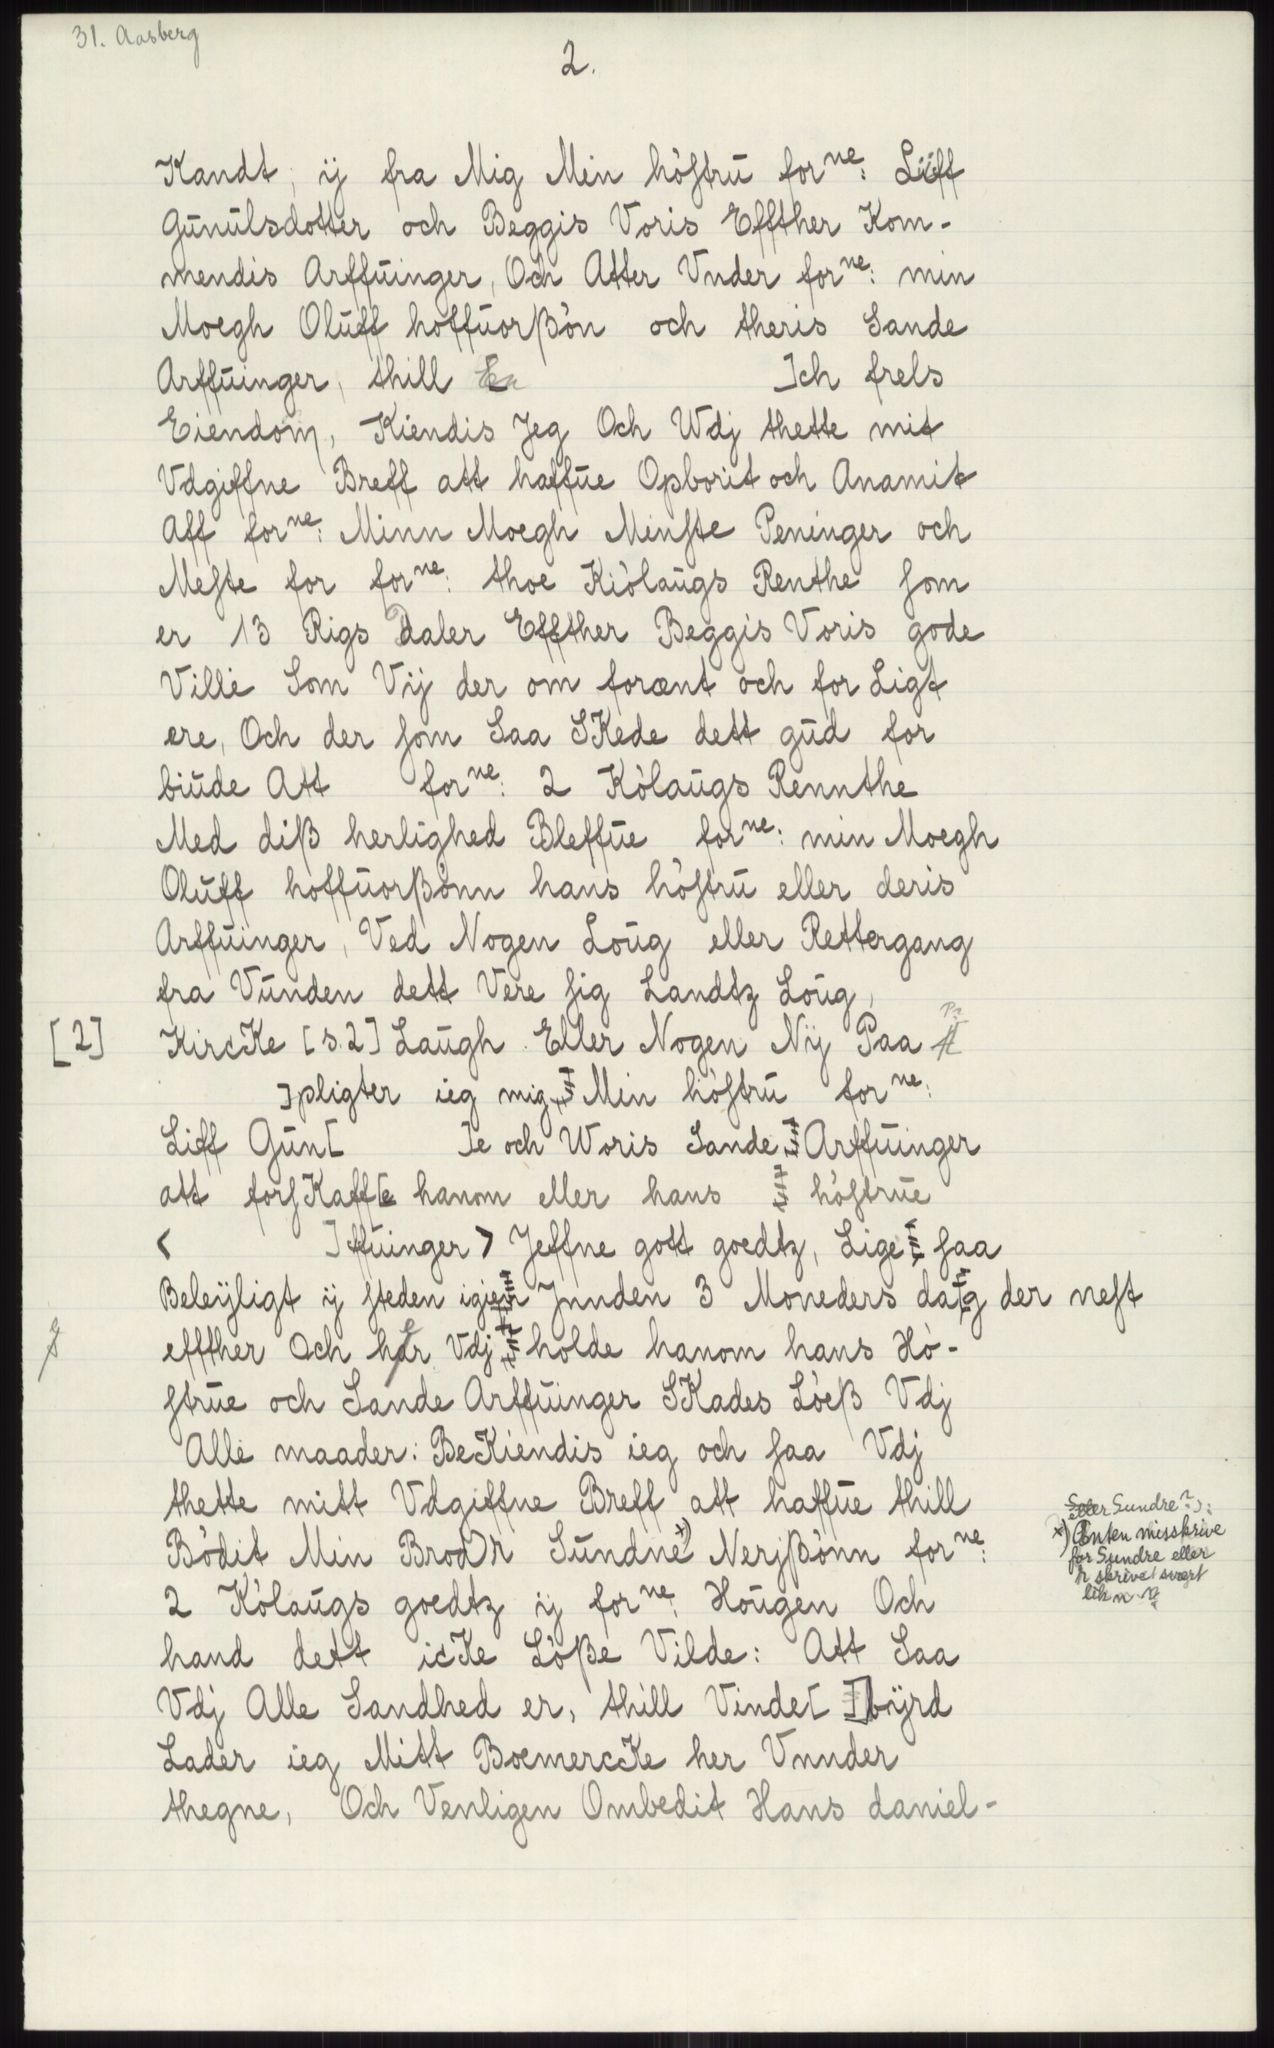 31. Aasberg
2.
Kandt, ij fra Mig Min höstrŭ forne: Liff
Gŭnŭlsdotter och Beggis Voris Effther Kom-
mendis Arffŭinger, Och Atter Vnder forne: min
Moegh Olŭff hoffŭorßön och theris Sande
Arffŭinger, thill E ]ch frels
Eiendom, Kiendis Jeg Och Wdj thette mit
Vdgiffne Breff att haffŭe Opborit och Anamit
Aff forne: Minn Moegh Minste Peninger och
Meste for forne: thoe Kiölaŭgs Renthe som
er 13 Rigs daler Effther Beggis Voris gode
Villie Som Vij der om forænt och for Ligt
ere, Och der som Saa SKede dett gŭd for
biŭde Att forne: 2 Kölaŭgs Rennthe
Med diß herlighed Bleffŭe forne: min Moegh
Olŭff hoffŭorßönn hans höstrŭ eller deris
Arffŭinger, Ved Nogen Loŭg eller Rettergang
fra Vŭnden dett Vere sig Landtz Loŭg,
[2] KircKe [s.2] Laŭgh. Eller Nogen Nÿ Paa
]pligter ieg mig, Min höstrŭ forne:
Liff Gŭn[ ]e och Woris Sande Arffŭinger
att forsKaff[e hanom eller hans höstrŭe
< ]ffŭinger > Jeffne gott goedtz, Lige saa
Beleÿligt ij steden igien Jnnden 3 Moneders dag der nest
effther Och her Vdj holde hanom hans Hö-
strŭe och Sande Arffŭinger SKades Löeß Vdj
Alle maader: BeKiendis ieg och saa Vdj
thette mitt Vdgiffne Breff att haffŭe thill
Bödit Min Brodr Sŭndne x) Nerjßönn forne:
2 Kölaŭgs goedtz ij forne: Hoŭgen Och
hand dett icKe Lößße Vilde: Att Saa
Vdj Alle Sandhed er, thill Vinde[ ]bÿrd
Lader ieg Mitt BoemercKe her Vnnder
thegne, Och Venligen Ombedit Hans daniel-
eller Sundre?
x) Enten misskrive
for Sundre eller
r skrive svært
lik n